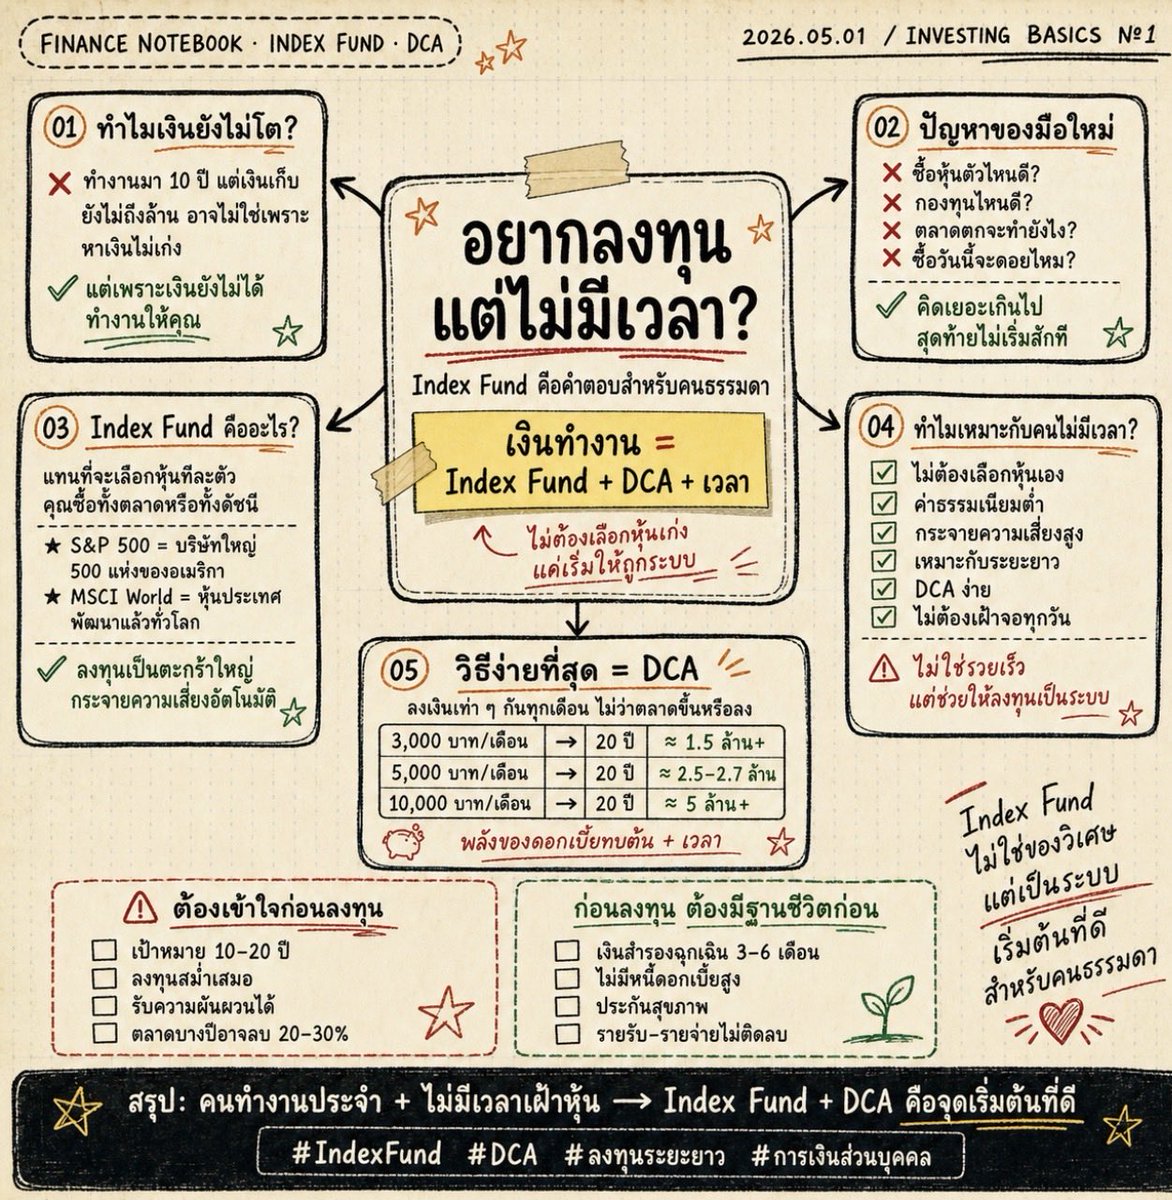 FINANCE NOTEBOOK · INDEX FUND · DCA
2026.05.01 / INVESTING BASICS №1
01 ทำไมเงินยังไม่โต?
✗ ทำงานมา 10 ปี แต่เงินเก็บ
ยังไม่ถึงล้าน อาจไม่ใช่เพราะ
หาเงินไม่เก่ง
✓ แต่เพราะเงินยังไม่ได้
ทำงานให้คุณ
02 ปัญหาของมือใหม่
✗ ซื้อหุ้นตัวไหนดี?
✗ กองทุนไหนดี?
✗ ตลาดตกจะทำยังไง?
✗ ซื้อวันนี้จะดอยไหม?
✓ คิดเยอะเกินไป
สุดท้ายไม่เริ่มสักที
อยากลงทุน
แต่ไม่มีเวลา?
Index Fund คือคำตอบสำหรับคนธรรมดา
เงินทำงาน =
Index Fund + DCA + เวลา
ไม่ต้องเลือกหุ้นเก่ง
แค่เริ่มให้ถูกระบบ
03 Index Fund คืออะไร?
แทนที่จะเลือกหุ้นทีละตัว
คุณซื้อทั้งตลาดหรือทั้งดัชนี
★ S&P 500 = บริษัทใหญ่
500 แห่งของอเมริกา
★ MSCI World = หุ้นประเทศ
พัฒนาแล้วทั่วโลก
✓ ลงทุนเป็นตะกร้าใหญ่
กระจายความเสี่ยงอัตโนมัติ
04 ทำไมเหมาะกับคนไม่มีเวลา?
☑ ไม่ต้องเลือกหุ้นเอง
☑ ค่าธรรมเนียมต่ำ
☑ กระจายความเสี่ยงสูง
☑ เหมาะกับระยะยาว
☑ DCA ง่าย
☑ ไม่ต้องเฝ้าจอทุกวัน
⚠ ไม่ใช่รวยเร็ว
แต่ช่วยให้ลงทุนเป็นระบบ
05 วิธีง่ายที่สุด = DCA
ลงเงินเท่า ๆ กันทุกเดือน ไม่ว่าตลาดขึ้นหรือลง
3,000 บาท/เดือน → 20 ปี ≈ 1.5 ล้าน+
5,000 บาท/เดือน → 20 ปี ≈ 2.5–2.7 ล้าน
10,000 บาท/เดือน → 20 ปี ≈ 5 ล้าน+
พลังของดอกเบี้ยทบต้น + เวลา
Index Fund
ไม่ใช่ของวิเศษ
แต่เป็นระบบ
เริ่มต้นที่ดี
สำหรับคนธรรมดา
⚠ ต้องเข้าใจก่อนลงทุน
☐ เป้าหมาย 10–20 ปี
☐ ลงทุนสม่ำเสมอ
☐ รับความผันผวนได้
☐ ตลาดบางปีอาจลบ 20–30%
ก่อนลงทุน ต้องมีฐานชีวิตก่อน
☐ เงินสำรองฉุกเฉิน 3–6 เดือน
☐ ไม่มีหนี้ดอกเบี้ยสูง
☐ ประกันสุขภาพ
☐ รายรับ–รายจ่ายไม่ติดลบ
สรุป: คนทำงานประจำ + ไม่มีเวลาเฝ้าหุ้น → Index Fund + DCA คือจุดเริ่มต้นที่ดี
#IndexFund #DCA #ลงทุนระยะยาว #การเงินส่วนบุคคล